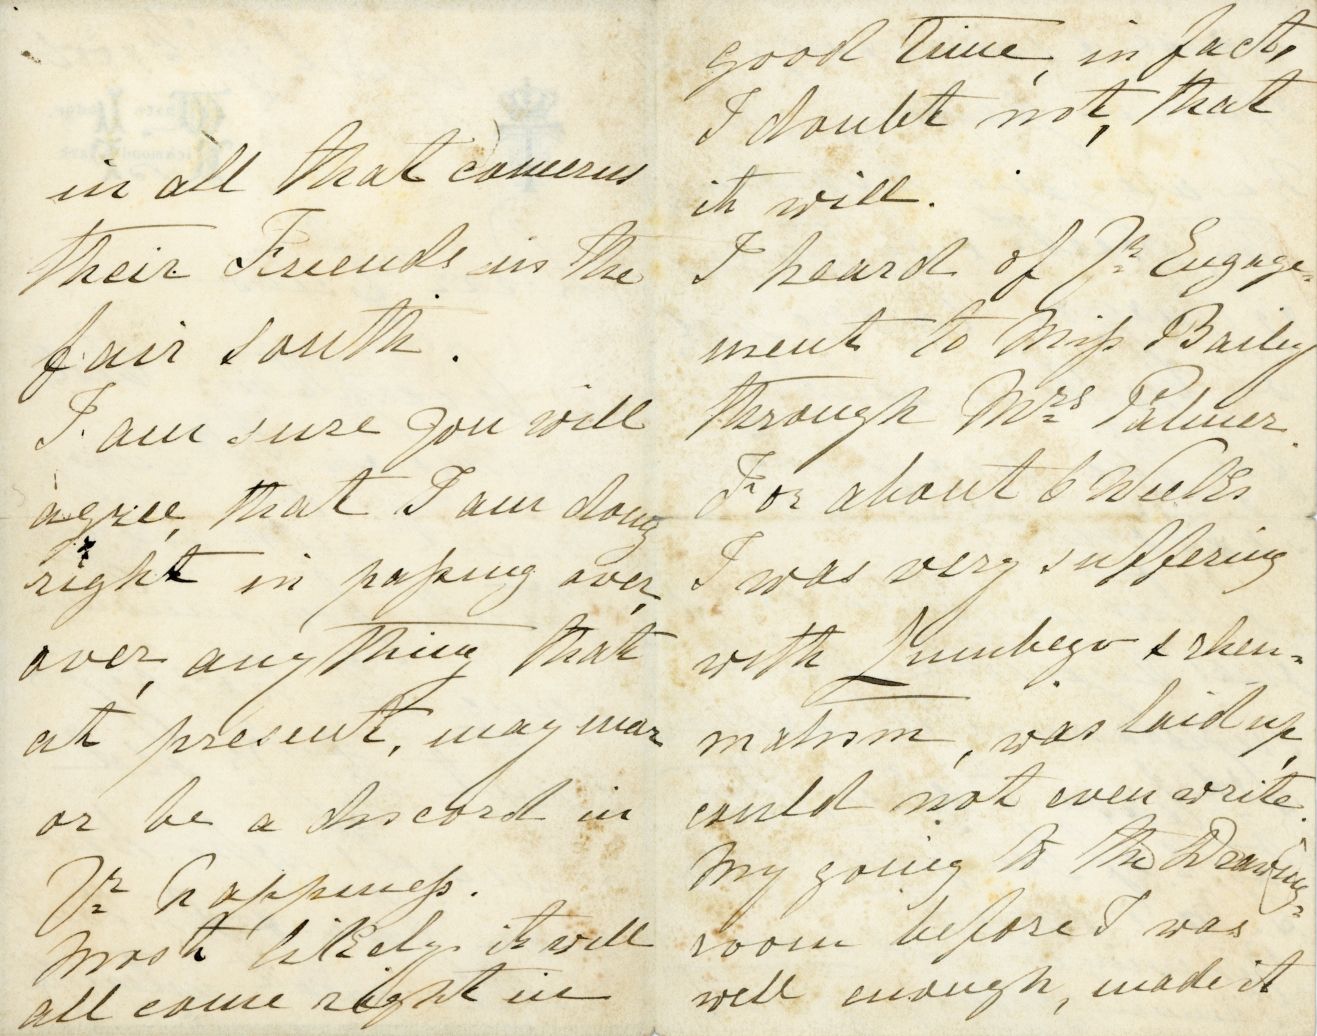 in all that concerns
their Friends in the
fair south.
I am sure you will
agree, that I am doing
right in passing over,
over, anything that
at present, may mar
or be a discord in
Yr. happiness.
Most likely it will
all come right in
good Time, in fact,
I doubt not, that
it will.
I heard of Yr. Engage=
ment to Miss Bailey
through Mrs. Palmer.
For about 6 Weeks
I was very suffering
with Lumbego & rheu=
matism, was laid up,
could not even write.
My going to the Drawing=
room before I was
well enough, made it